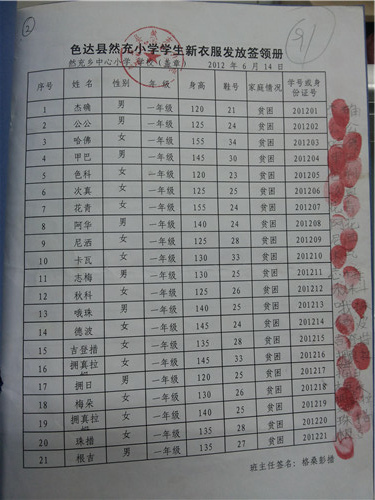 ②
91
色达县然充小学学生新衣服发放签领册
然充乡中心小学 学校(盖章) 2012 年 6 月 14 日
序号 姓名 性别 年级 身高 鞋号 家庭情况 学号或身份证号
1 杰确 男 一年级 120 21 贫困 201201
2 公公 男 一年级 125 24 贫困 201202
3 哈佛 女 一年级 155 34 贫困 201203
4 甲巴 男 一年级 145 30 贫困 201204
5 色科 女 一年级 120 23 贫困 201205
6 次真 女 一年级 125 25 贫困 201206
7 花青 女 一年级 155 24 贫困 201207
8 阿华 男 一年级 140 24 贫困 201208
9 尼洒 女 一年级 125 28 贫困 201209
10 卡瓦 女 一年级 130 33 贫困 201210
11 志梅 男 一年级 130 25 贫困 201211
12 秋科 女 一年级 125 26 贫困 201212
13 哦珠 男 一年级 140 25 贫困 201213
14 德波 女 一年级 145 24 贫困 201214
15 吉登措 女 一年级 135 28 贫困 201215
16 拥真拉 女 一年级 145 33 贫困 201216
17 拥日 男 一年级 120 25 贫困 201217
18 梅朵 女 一年级 130 26 贫困 201218
19 拥真拉 女 一年级 140 25 贫困 201219
20 珠措 女 一年级 135 28 贫困 201220
21 根吉 男 一年级 135 27 贫困 201221
班主任签名:格桑彭措